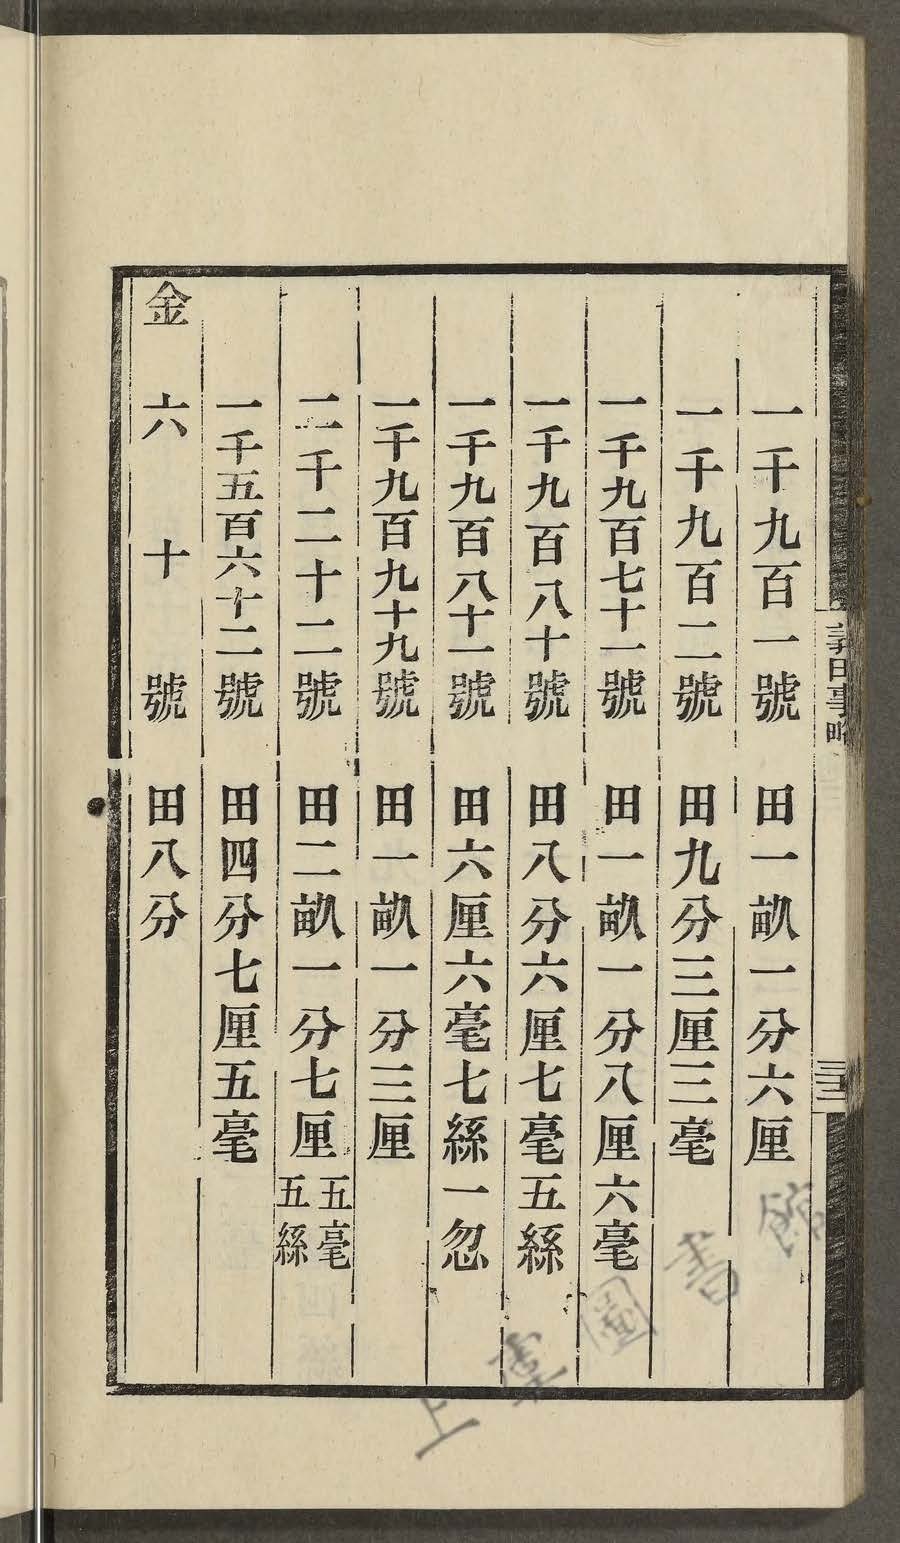 義田事略
一千九百一號　田一畝二分六厘
一千九百二號　田九分三厘三毫
一千九百七十一號　田一畝一分八厘六毫
一千九百八十號　田八分六厘七毫五絲
一千九百八十一號　田六厘六毫七絲一忽
一千九百九十九號　田一畝一分三厘
二千二十二號　田二畝一分七厘五毫五絲
一千五百六十二號　田四分七厘五毫
金　六十號　田八分
上虞圖書館